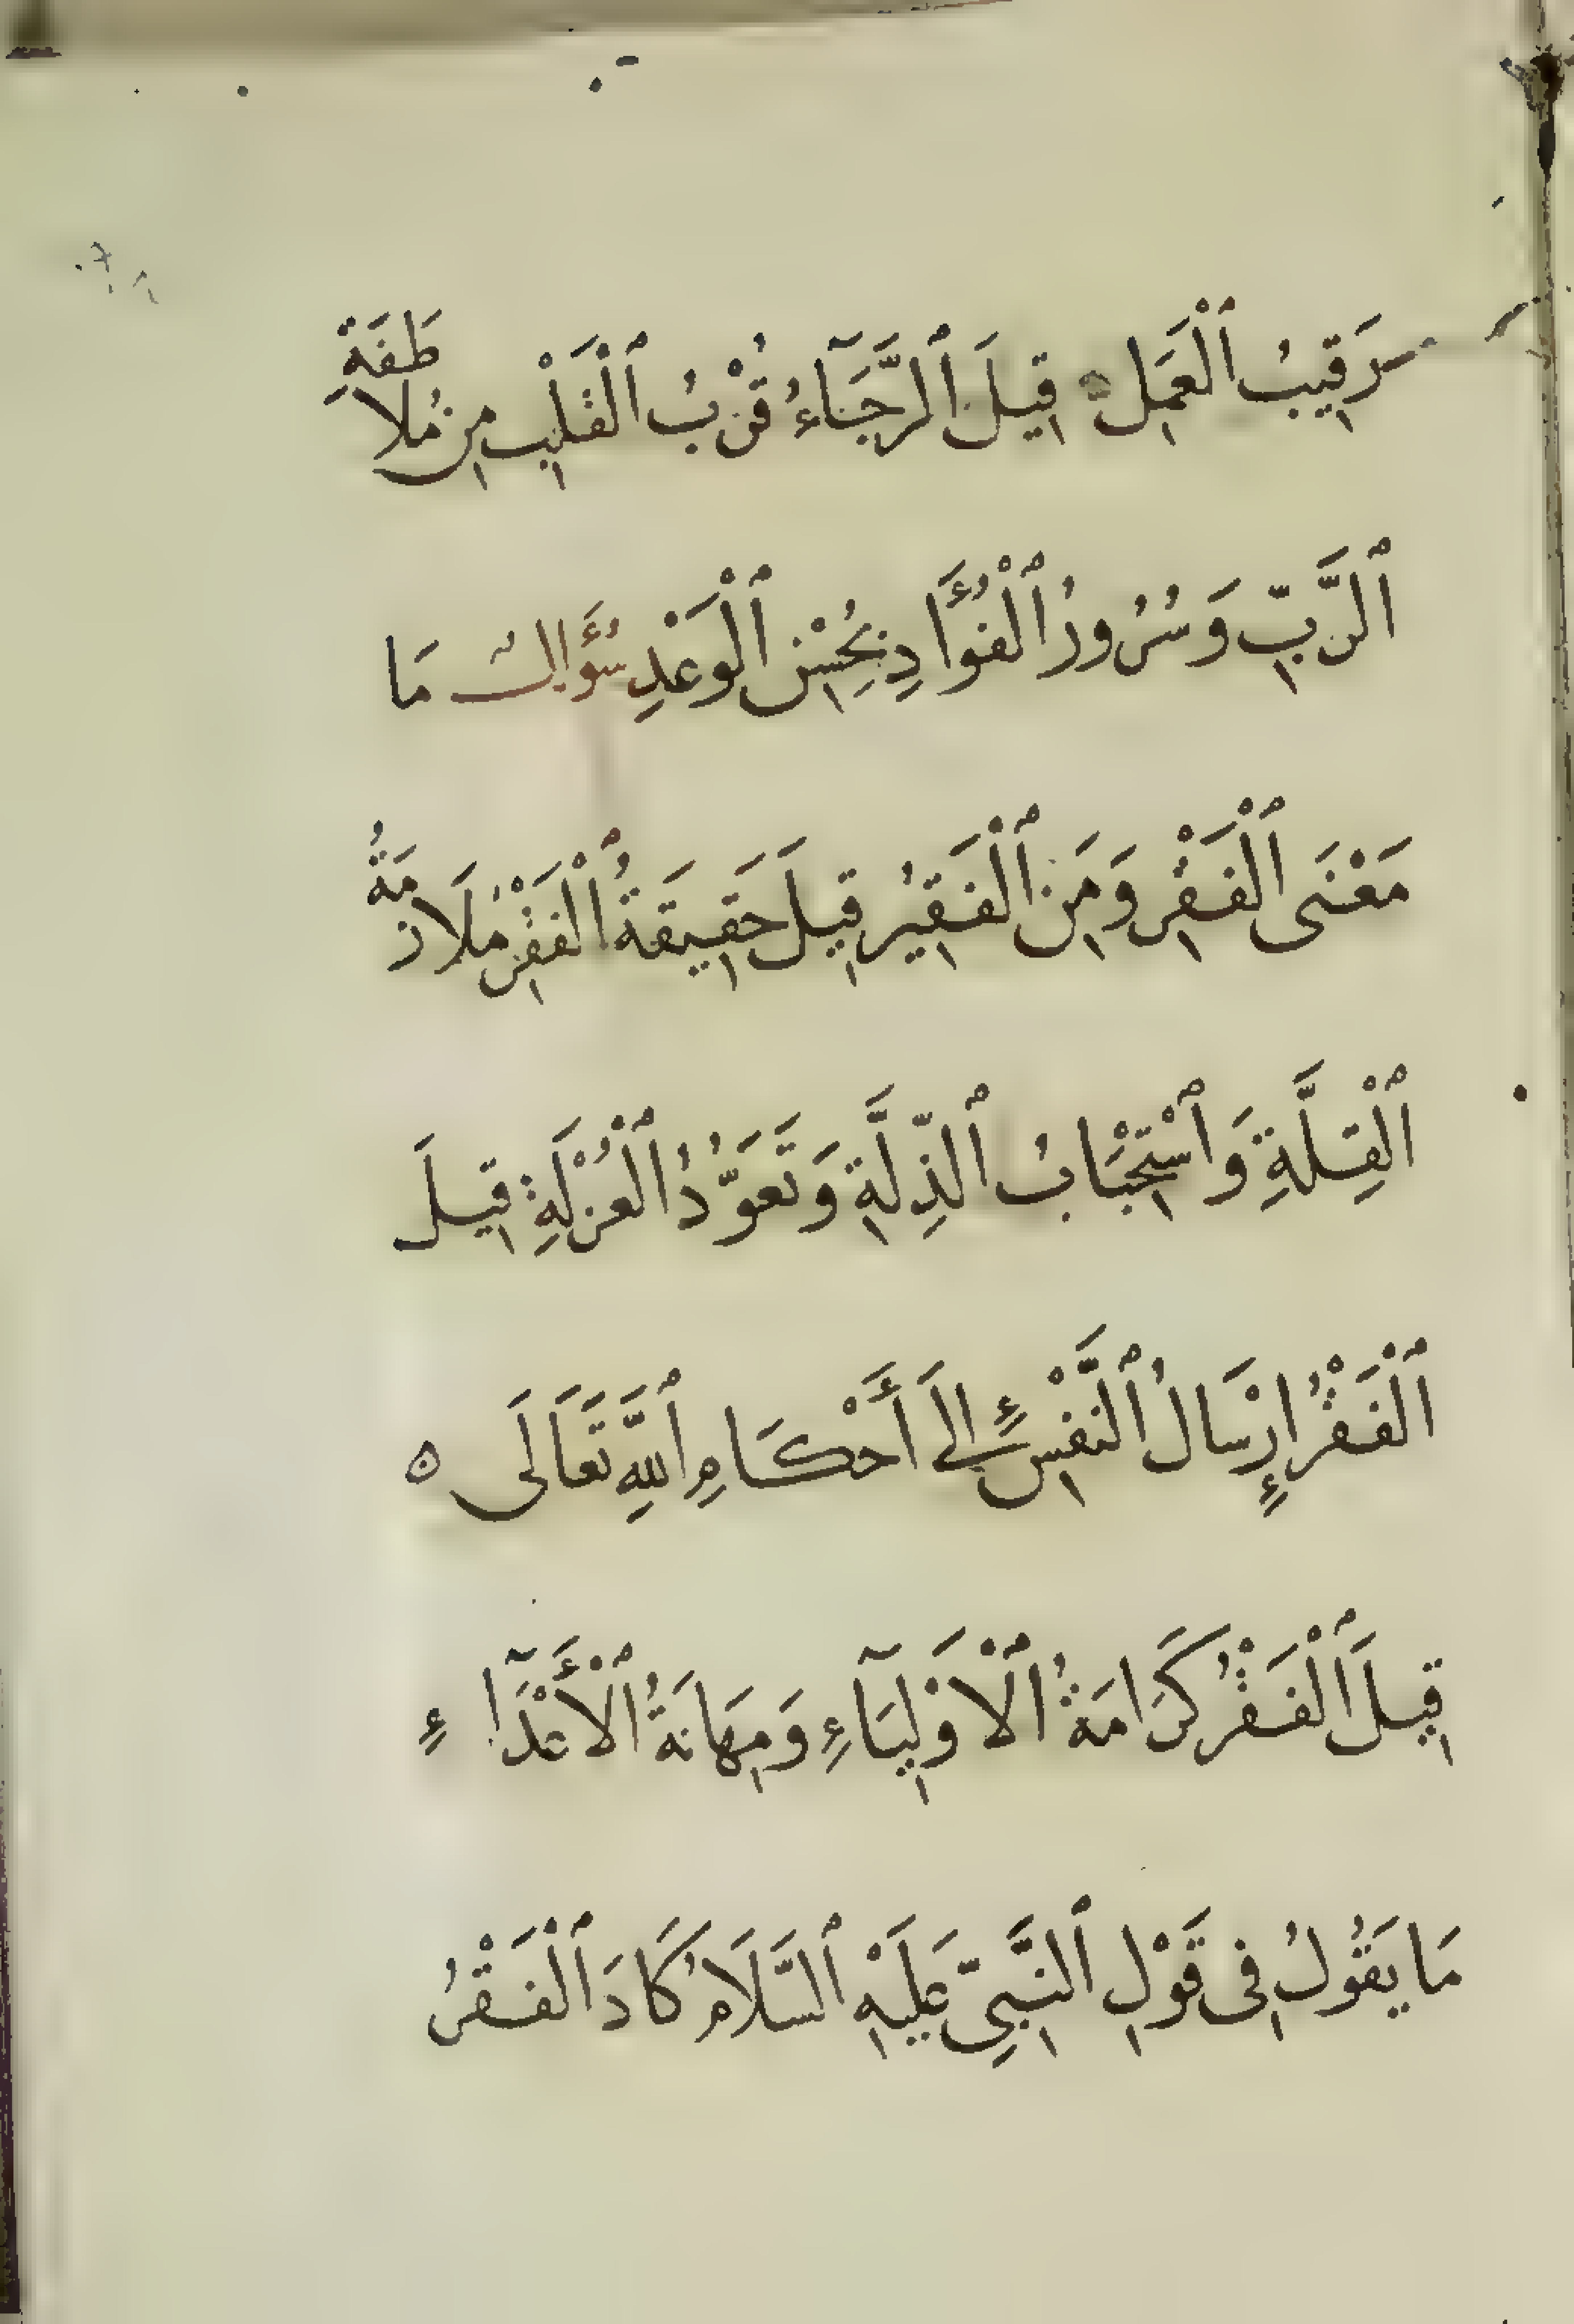 رَقِيبُ ٱلْعَمَلِ قِيلَ ٱلرَّجَآءُ قُرْبُ ٱلْقَلْبِ مِنْ مُلَاطَفَةِ
ٱلرَّبِّ وَسُرُورُ ٱلْفُؤَادِ بِحُسْنِ ٱلْوَعْدِ سُؤَالٌ مَا
مَعْنَى ٱلْفَقْرِ وَمَنِ ٱلْفَقِيْرُ قِيلَ حَقِيقَةُ ٱلْفَقْرِ مُلَازَمَةُ
ٱلْقِلَّةِ وَٱسْتِحْبَابُ ٱلذِّلَّةِ وَتَعَوُّدُ ٱلْعُزْلَةِ قِيلَ
ٱلْفَقْرُ إِرْسَالُ ٱلنَّفْسِ إِلَى أَحْكَامِ ٱللَّهِ تَعَالَى ه
قِيلَ ٱلْفَقْرُ كَرَامَةُ ٱلْأَوْلِيَآءِ وَمِهَانَةُ ٱلْأَعْدَآءِ
مَا يَقُولُ فِى قَوْلِ ٱلنَّبِىِّ عَلَيْهِ ٱلسَّلَامُ كَادَ ٱلْفَقْرُ